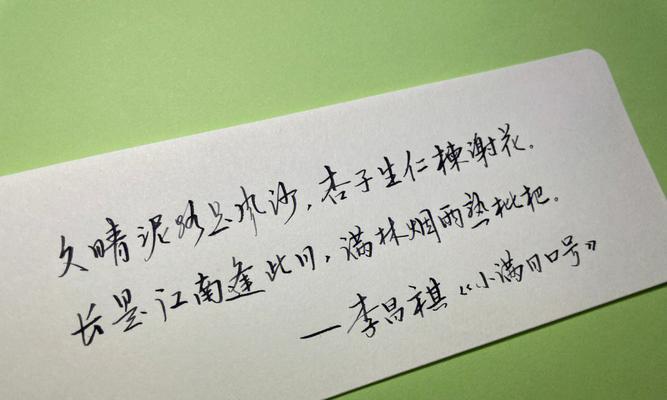 久晴泥路足风沙，杏子生仁楝谢花。
长是江南逢此日，满林烟雨熟枇杷。
—李昌祺《小满日口号》